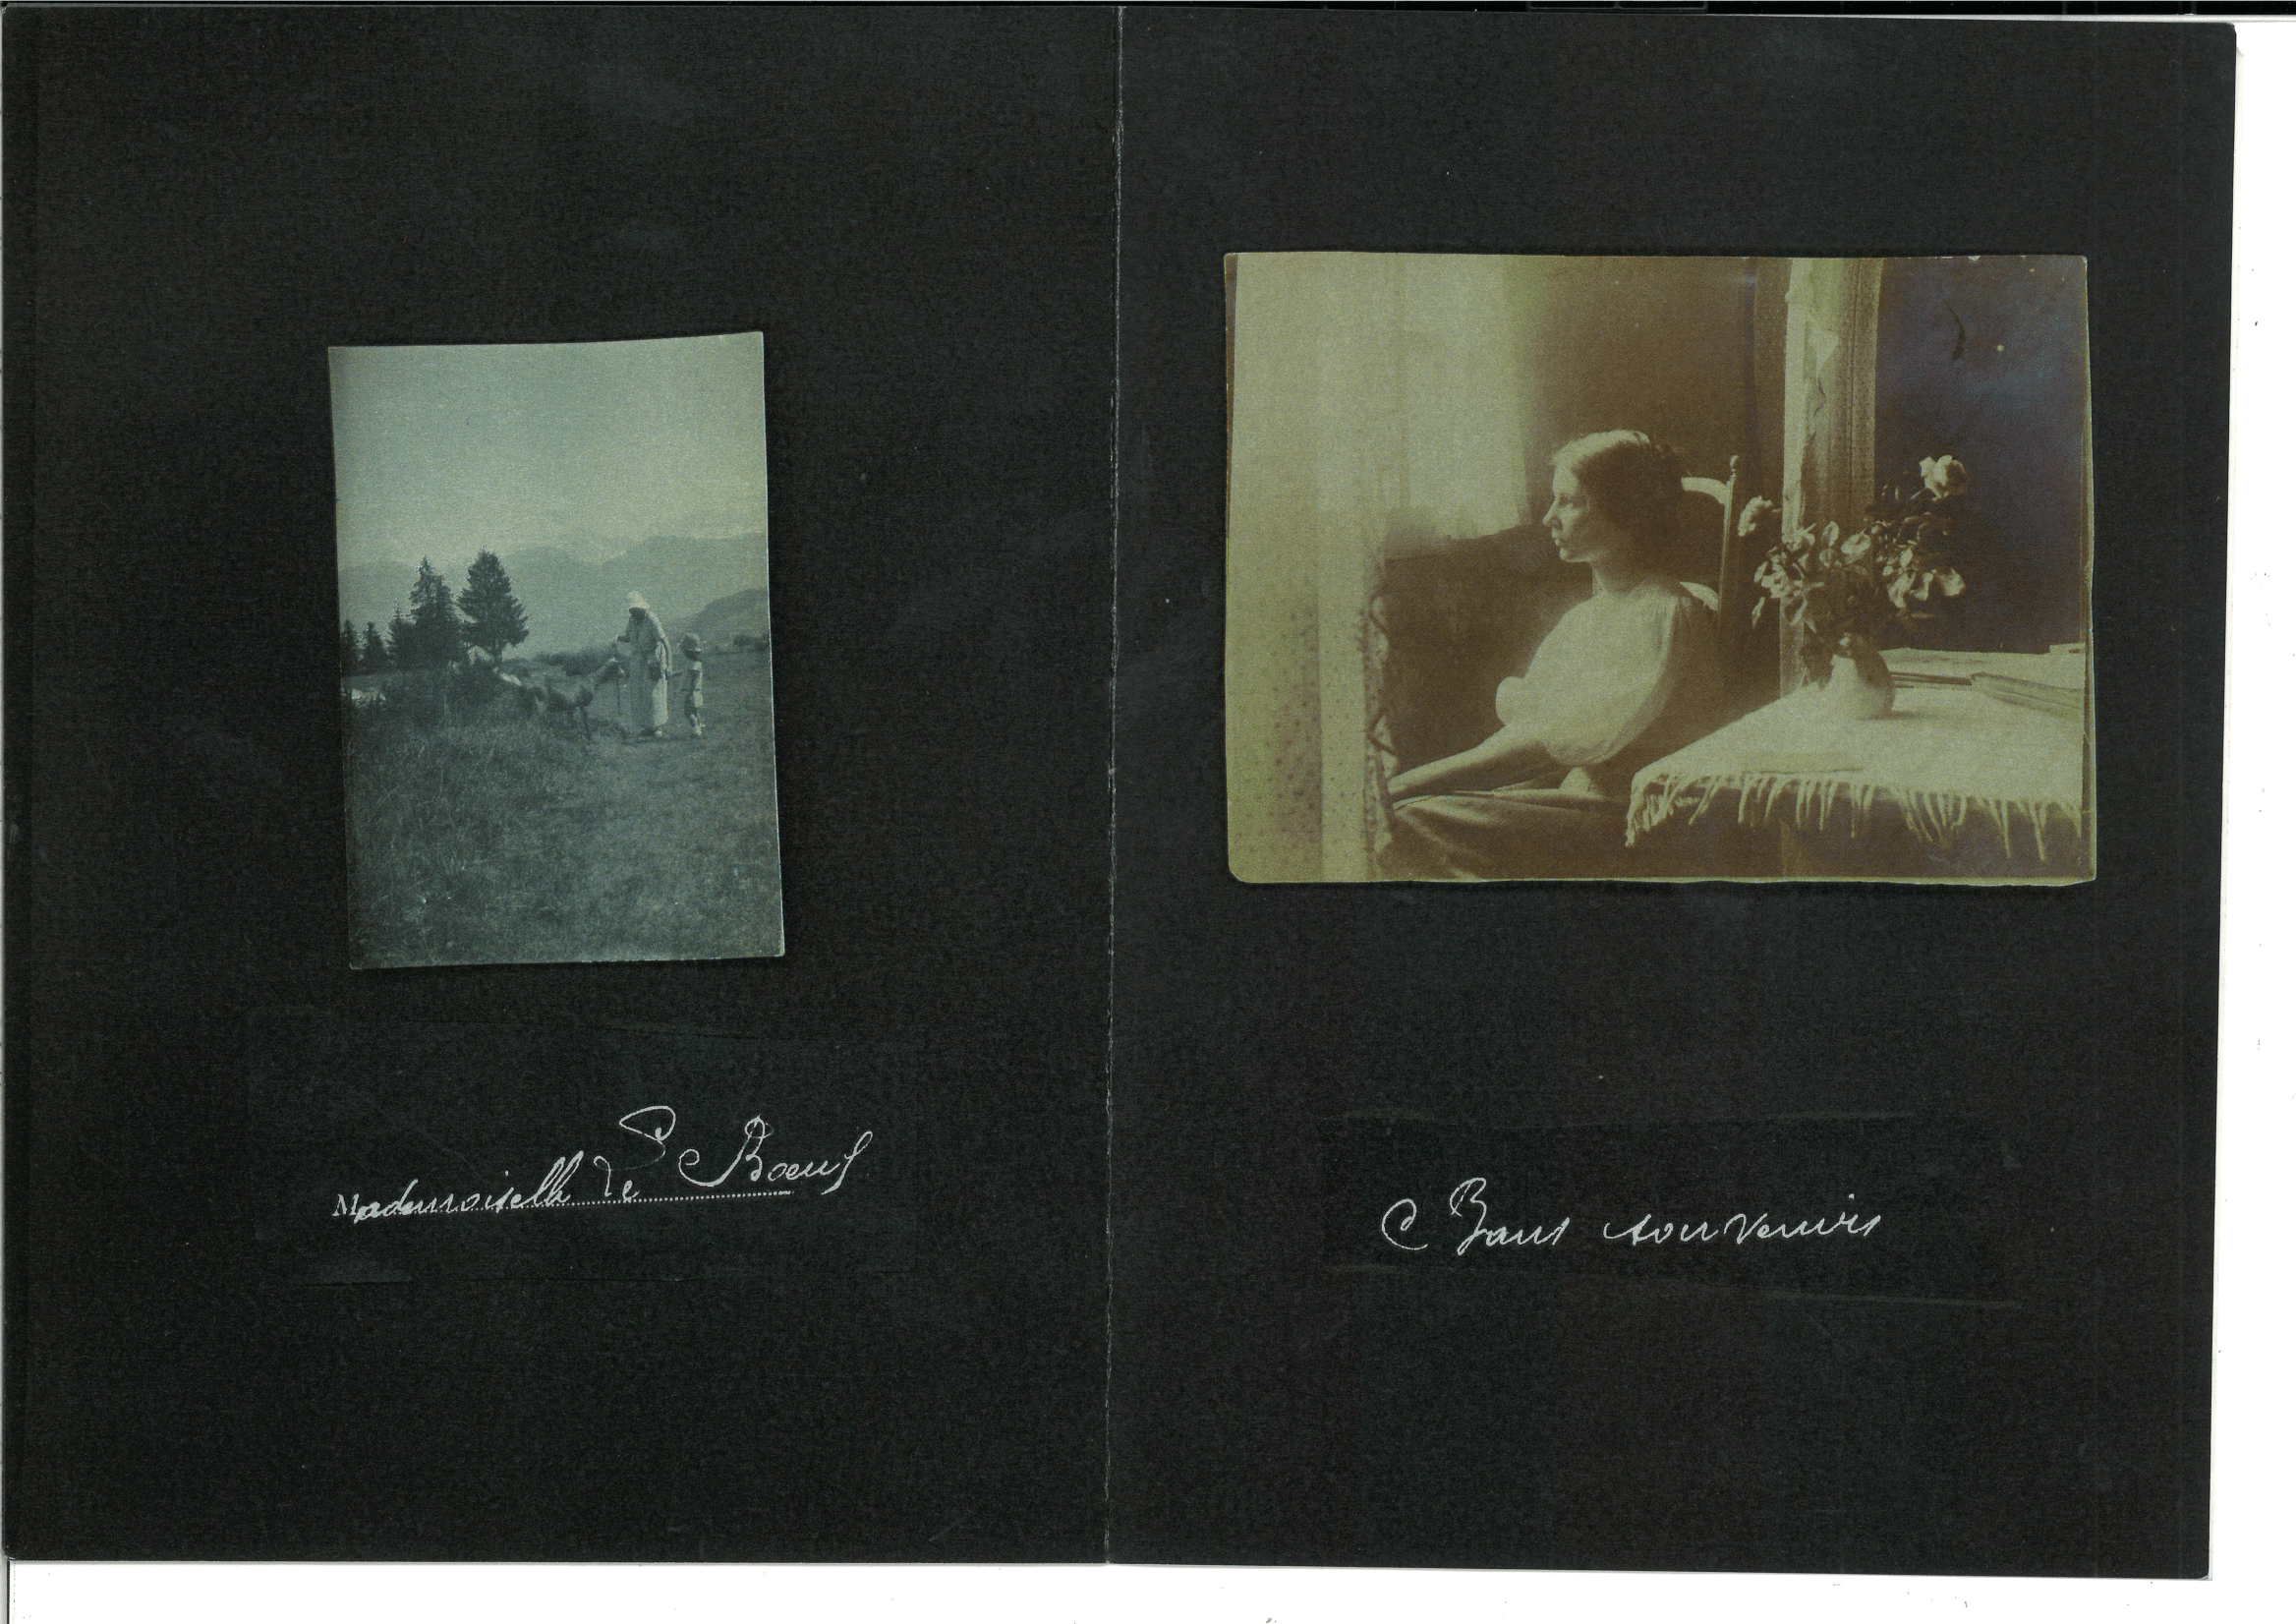 Mademoiselle Le Bœuf
Bons souvenirs